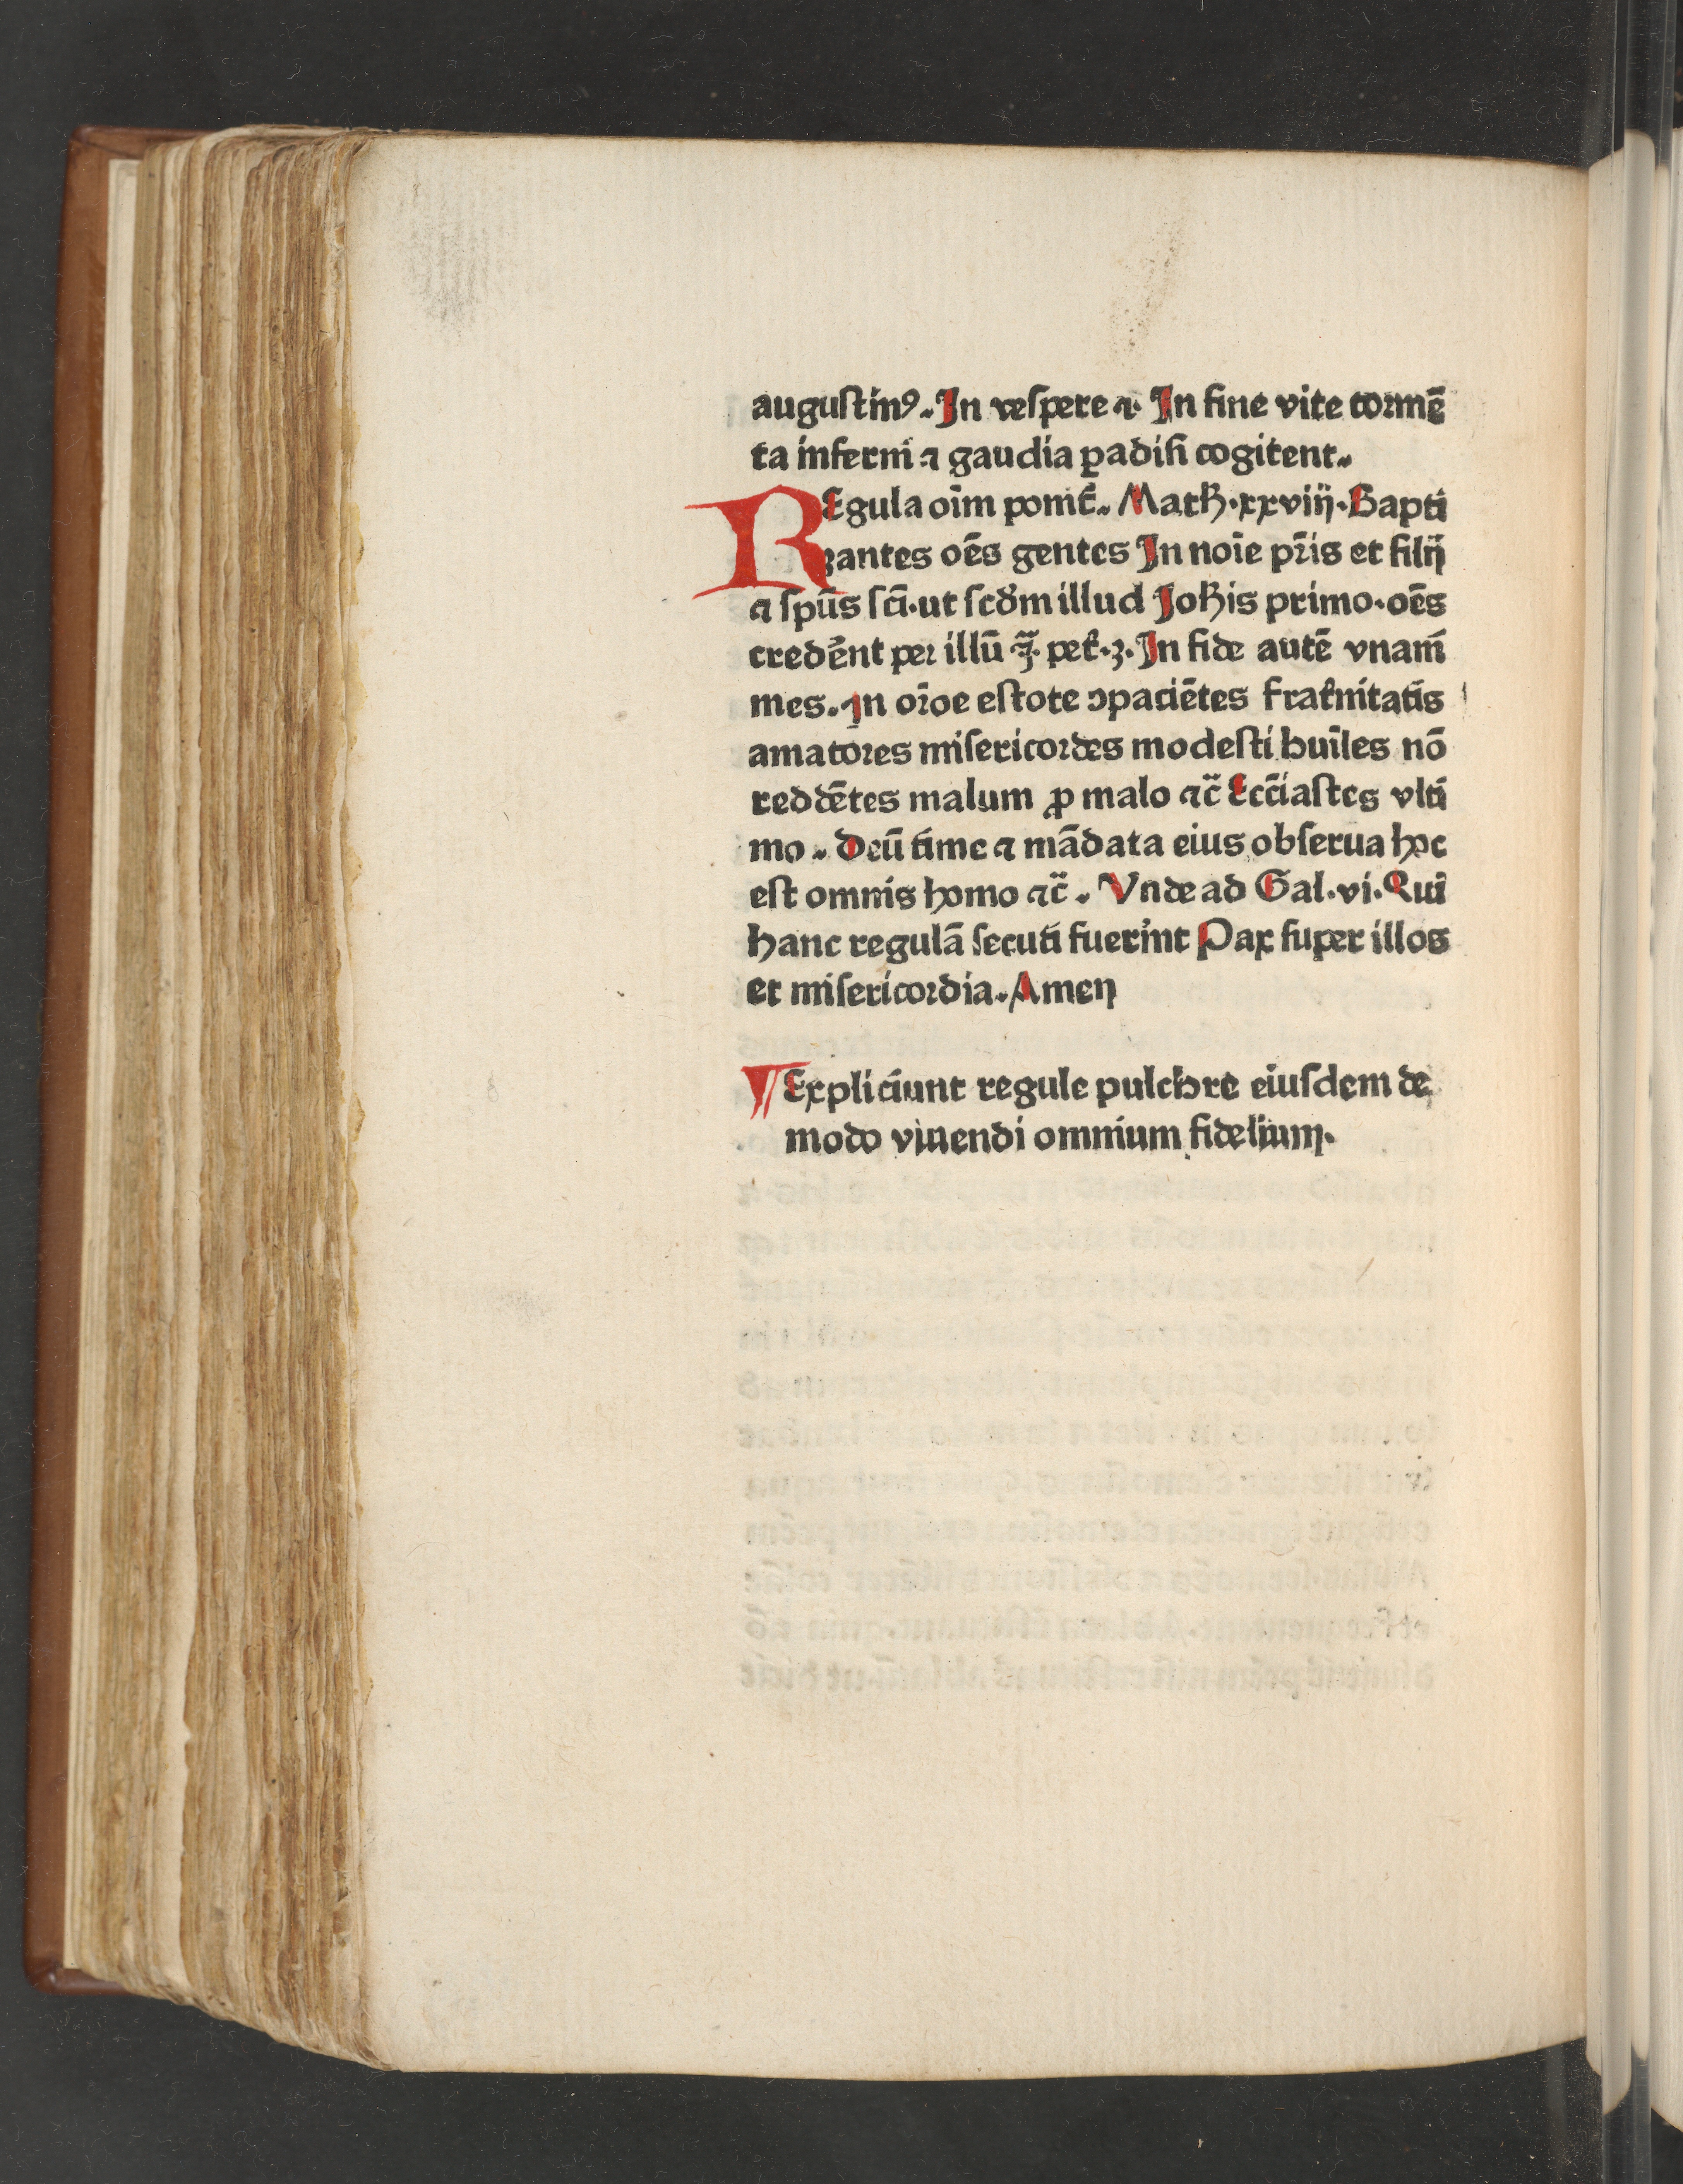 augustinꝰ. In vespere ⁊. In fine vite tormē
ta inferni ⁊ gaudia ꝑadisi cogitent.
REgula oīm ponit᷑. Math.xxviij. Bapti
zantes oēs gentes In noīe pr̄is et filij
⁊ spūs sc̄i. ut scd̄m illud Joh̄is primo. oēs
cred̄ent per illū .j̄. pet̄.3. In fide autē vnanī
mes. In or̄oe estote ꝯpaciētes frat̄nitatis
amatores misericordes modesti huīles nō
reddētes malum ꝓ malo ⁊c̄ Ecc̄iastes vlti
mo. Deū time ⁊ mādata eius obserua hoc
est omnis homo ⁊c̄. Vnde ad Gal. vi. Qui
hanc regulā secuti fuerint Pax super illos
et misericordia. Amen
¶ Expliciunt regule pulchre eiusdem de
modo viuendi omnium fidelium.